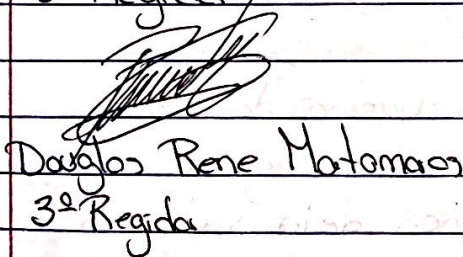 Douglas Rene Matamoros
3º Regidor